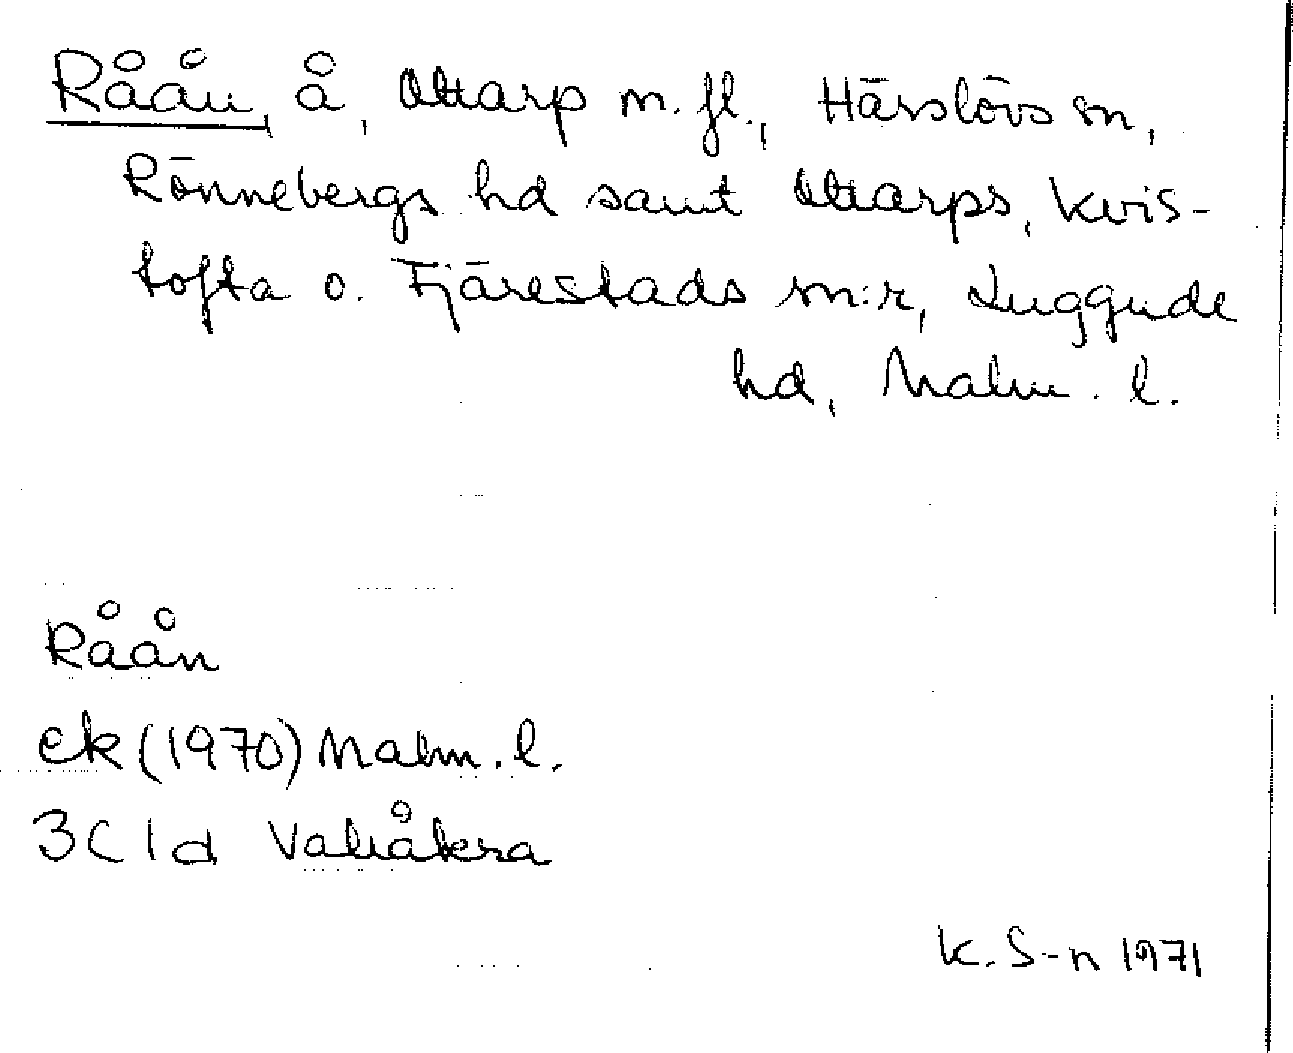 Råån, å, Ottarp m. fl., Härslövs sn,
Rönnebergs hd samt Ottarps, Kvis-
tofta o. Fjärestads sn:r, Luggude
hd, Malm. l.
Råån
ek (1970) Malm. l.
3C 1d Vallåkra
K. S-n 1971